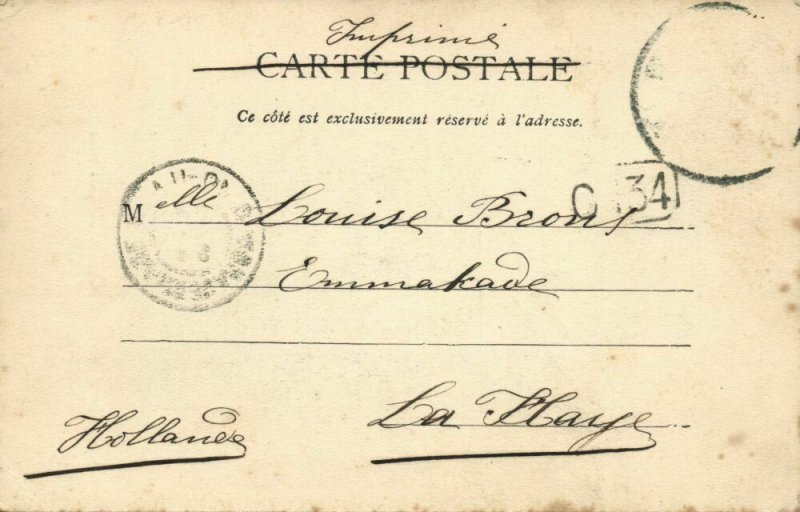 Imprimé
CARTE POSTALE
Ce côté est exclusivement réservé à l'adresse.
Mlle Louise Brons
Emmakade
La Haye
Hollande